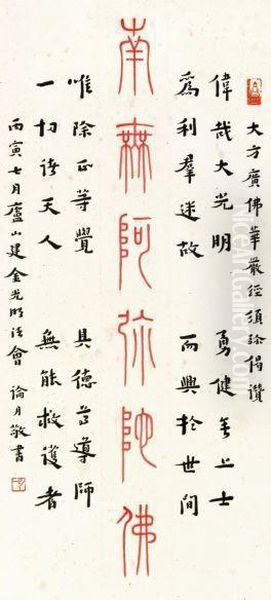 大方廣佛華嚴經須弥偈讚
偉哉大光明 勇健無上士
為利羣迷故 而興於世間
南無阿弥陀佛
唯除正等覺 具德尊導師
一切諸天人 無能救護者
丙寅七月廬山建金光明法會 論月敬書